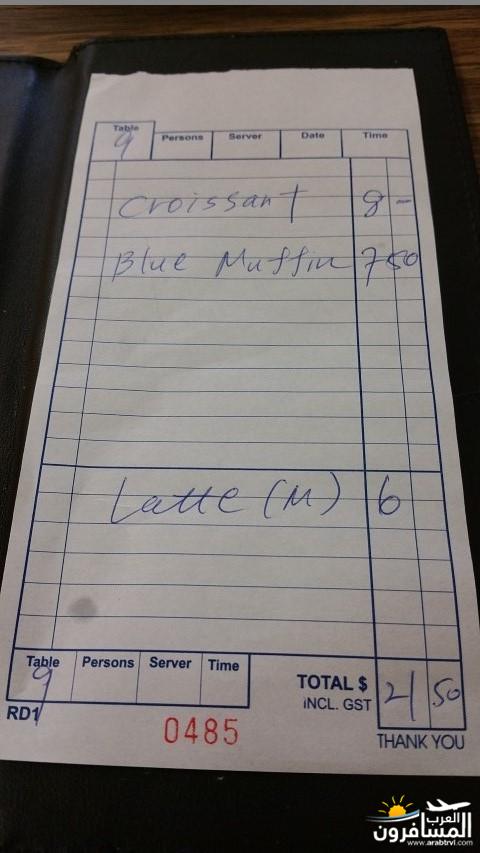 Table Persons Server Date Time
9
Croissant 8 -
Blue Muffin 7 50
Latte (M) 6
Table Persons Server Time
9
TOTAL $ 21 50
INCL. GST
RD1
0485
THANK YOU
العرب
المسافرون
www.arabtrvl.com